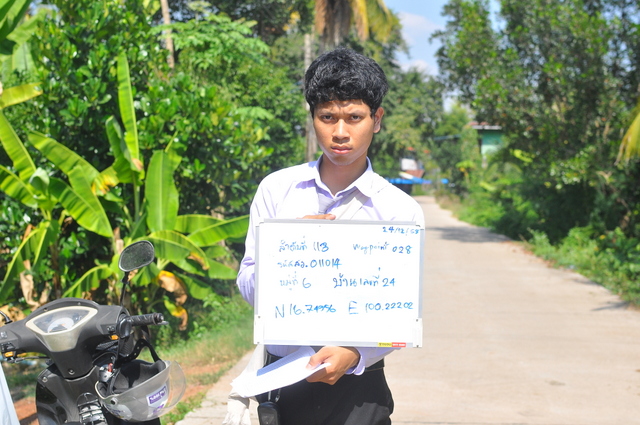 24/12/58
ลำดับที่ 113 waypoint 028
รหัสสอ. 011014
หมู่ที่ 6 บ้านเลขที่ 24
N 16.74956 E 100.22202